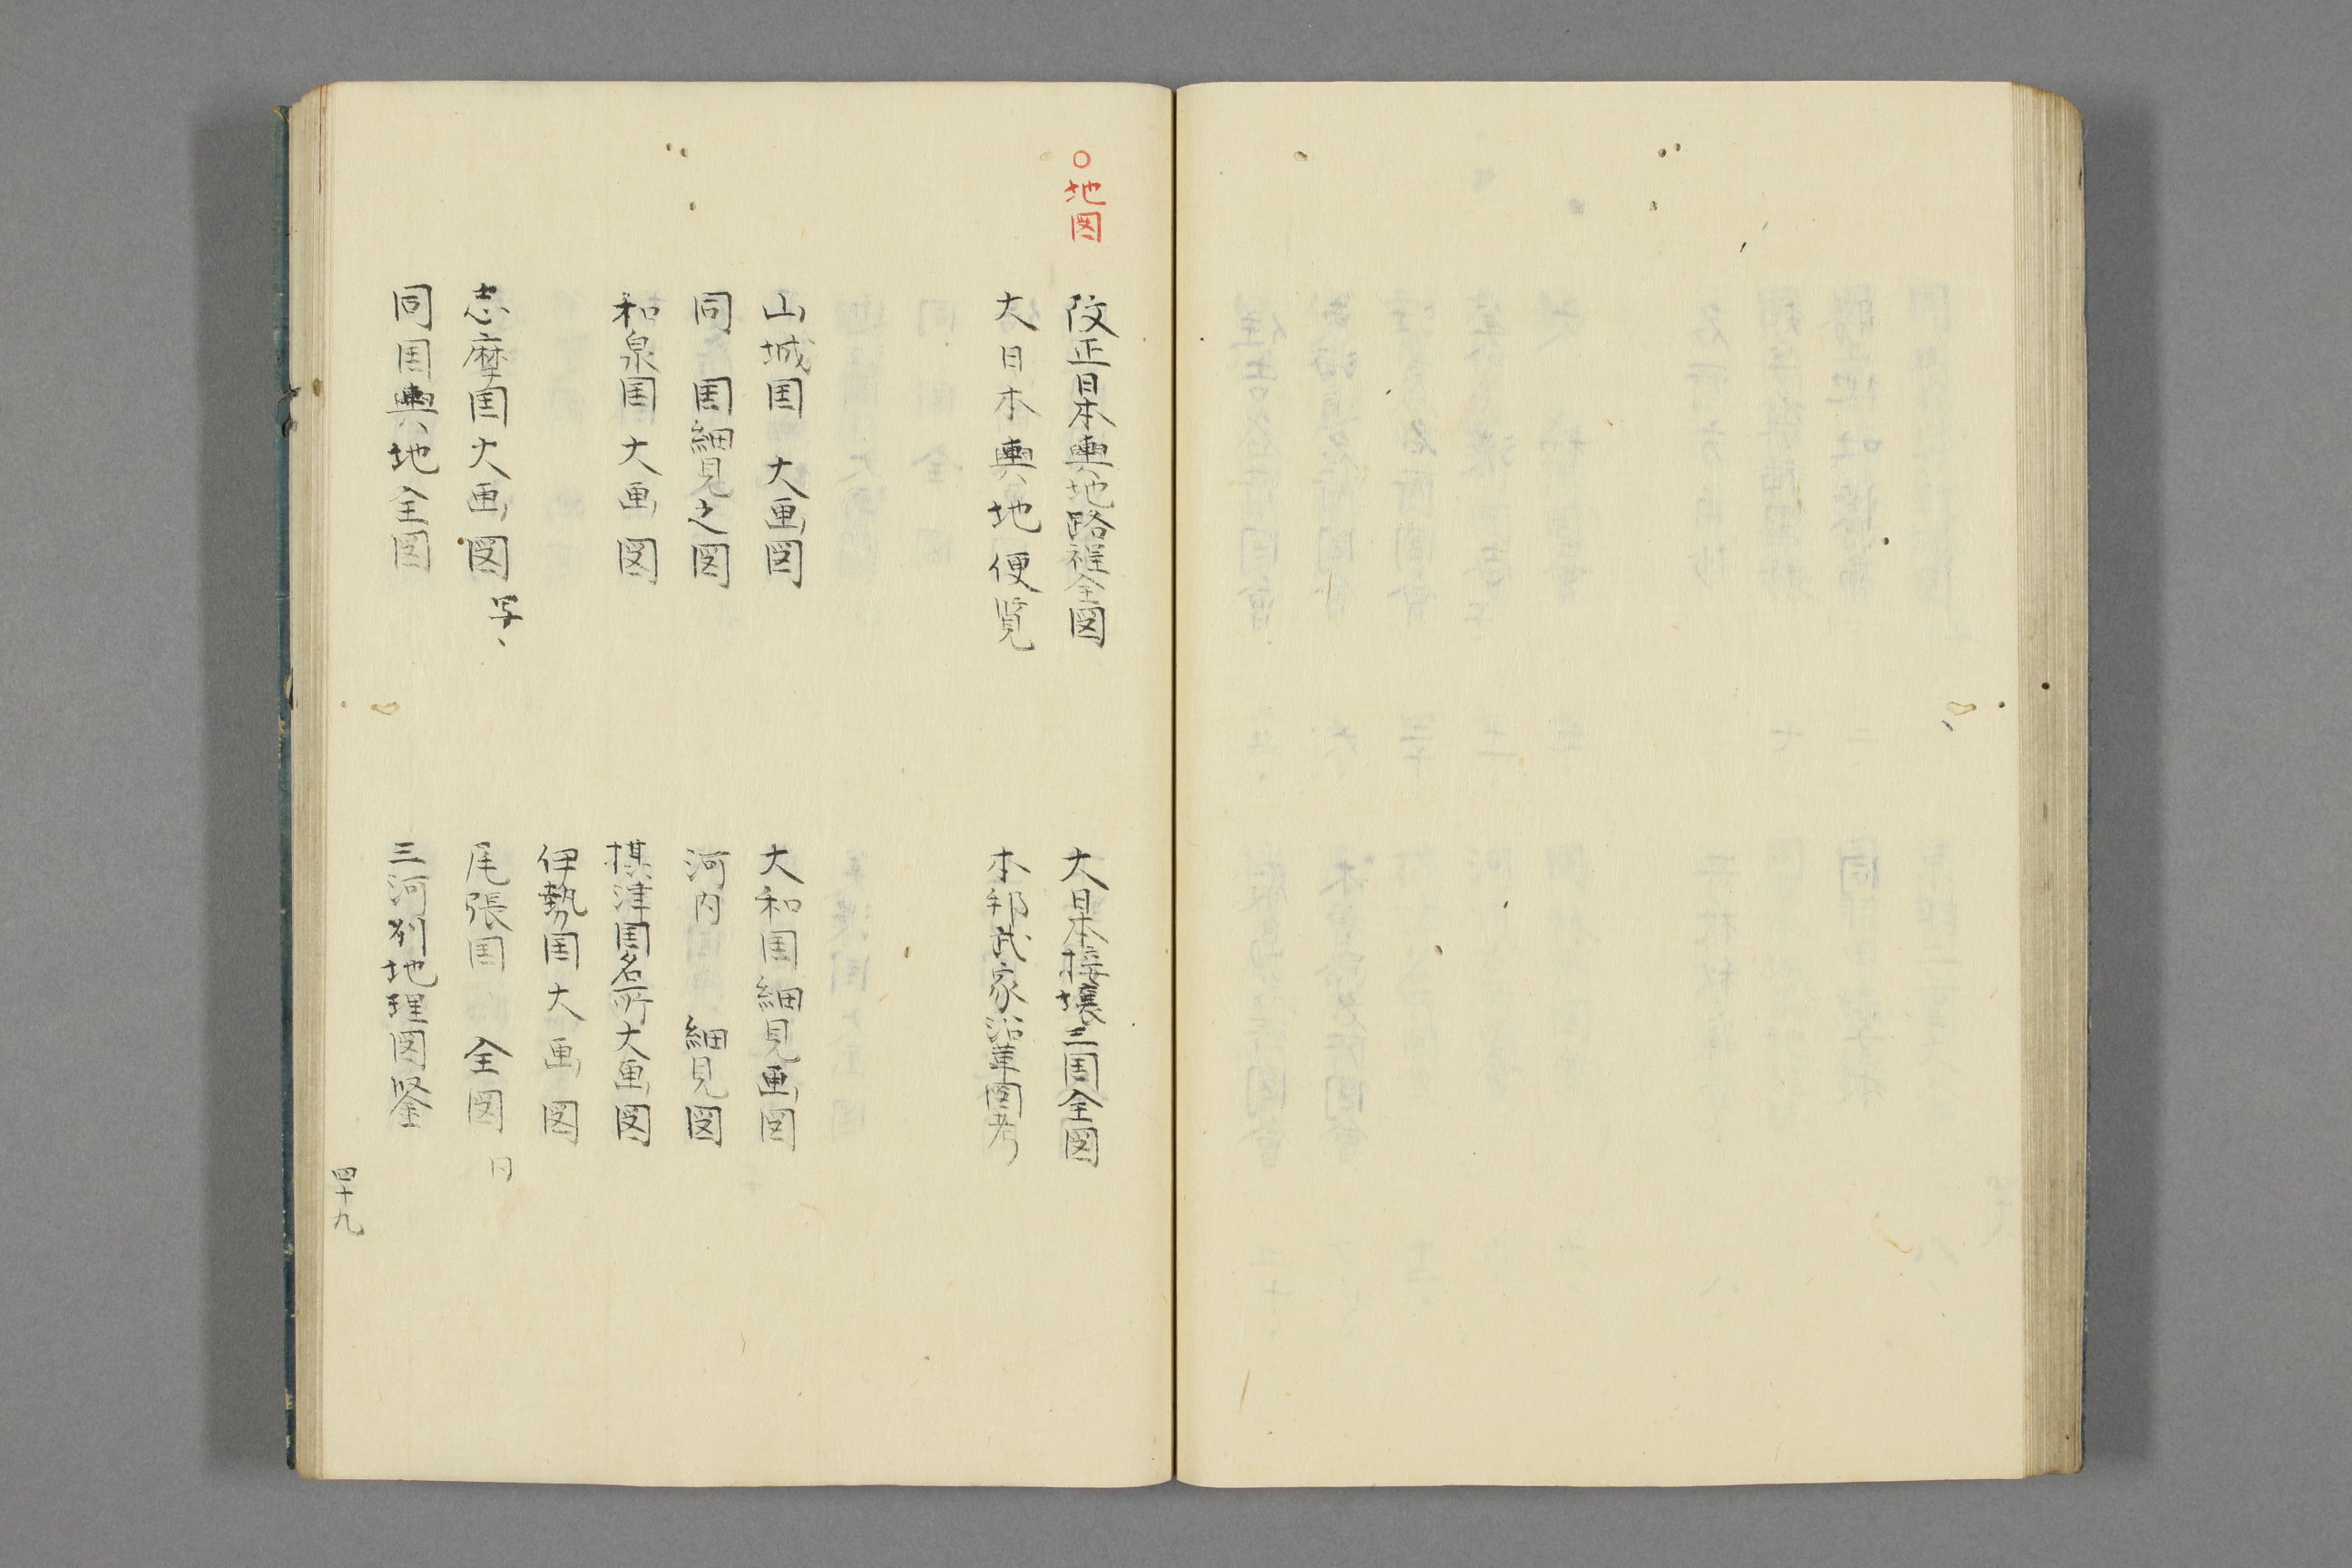 ○地図
改正日本輿地路程全図
大日本接壌三国全図
大日本輿地便覧
本邦武家沿革図考
山城国大画図
大和国細見画図
同国細見之図
河内細見図
和泉国大画図
摂津国名所大画図
伊勢国大画図
志摩国大画図 写、
尾張国全図
同国輿地全図
三河州地理図鑒
四十九